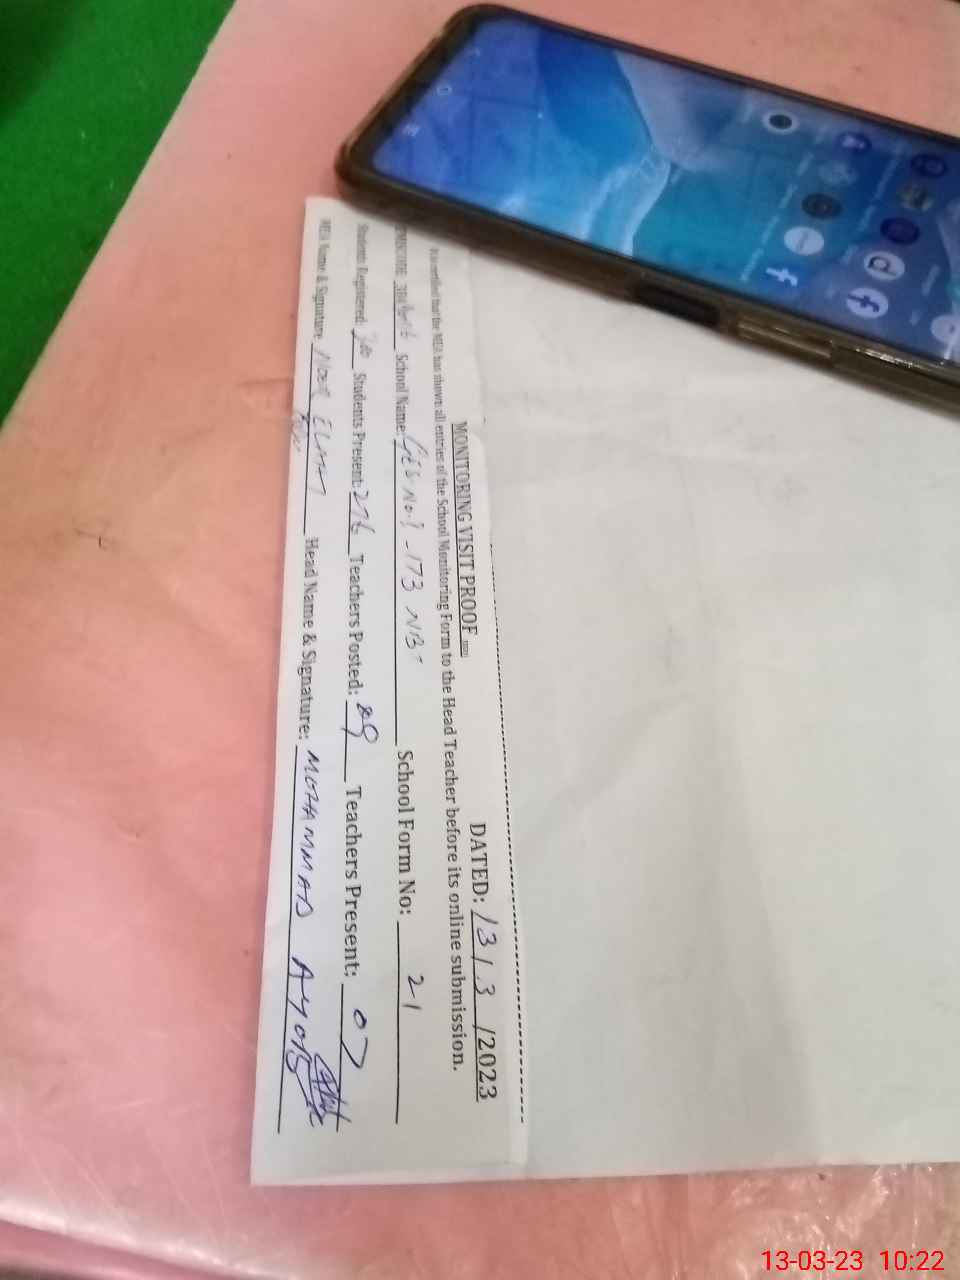 MONITORING VISIT PROOF
DATED: 13/3/2023
that the MEA has shown all entries of the School Monitoring Form to the Head Teacher before its online submission.
School Name: No.1 - 173 NB - School Form No: 21
Students Registered: Students Present: 276 Teachers Posted: 09 Teachers Present: 07
MEA Name & Signature: Head Name & Signature: MOHAMMAD AYOUB
13-03-23 10:22